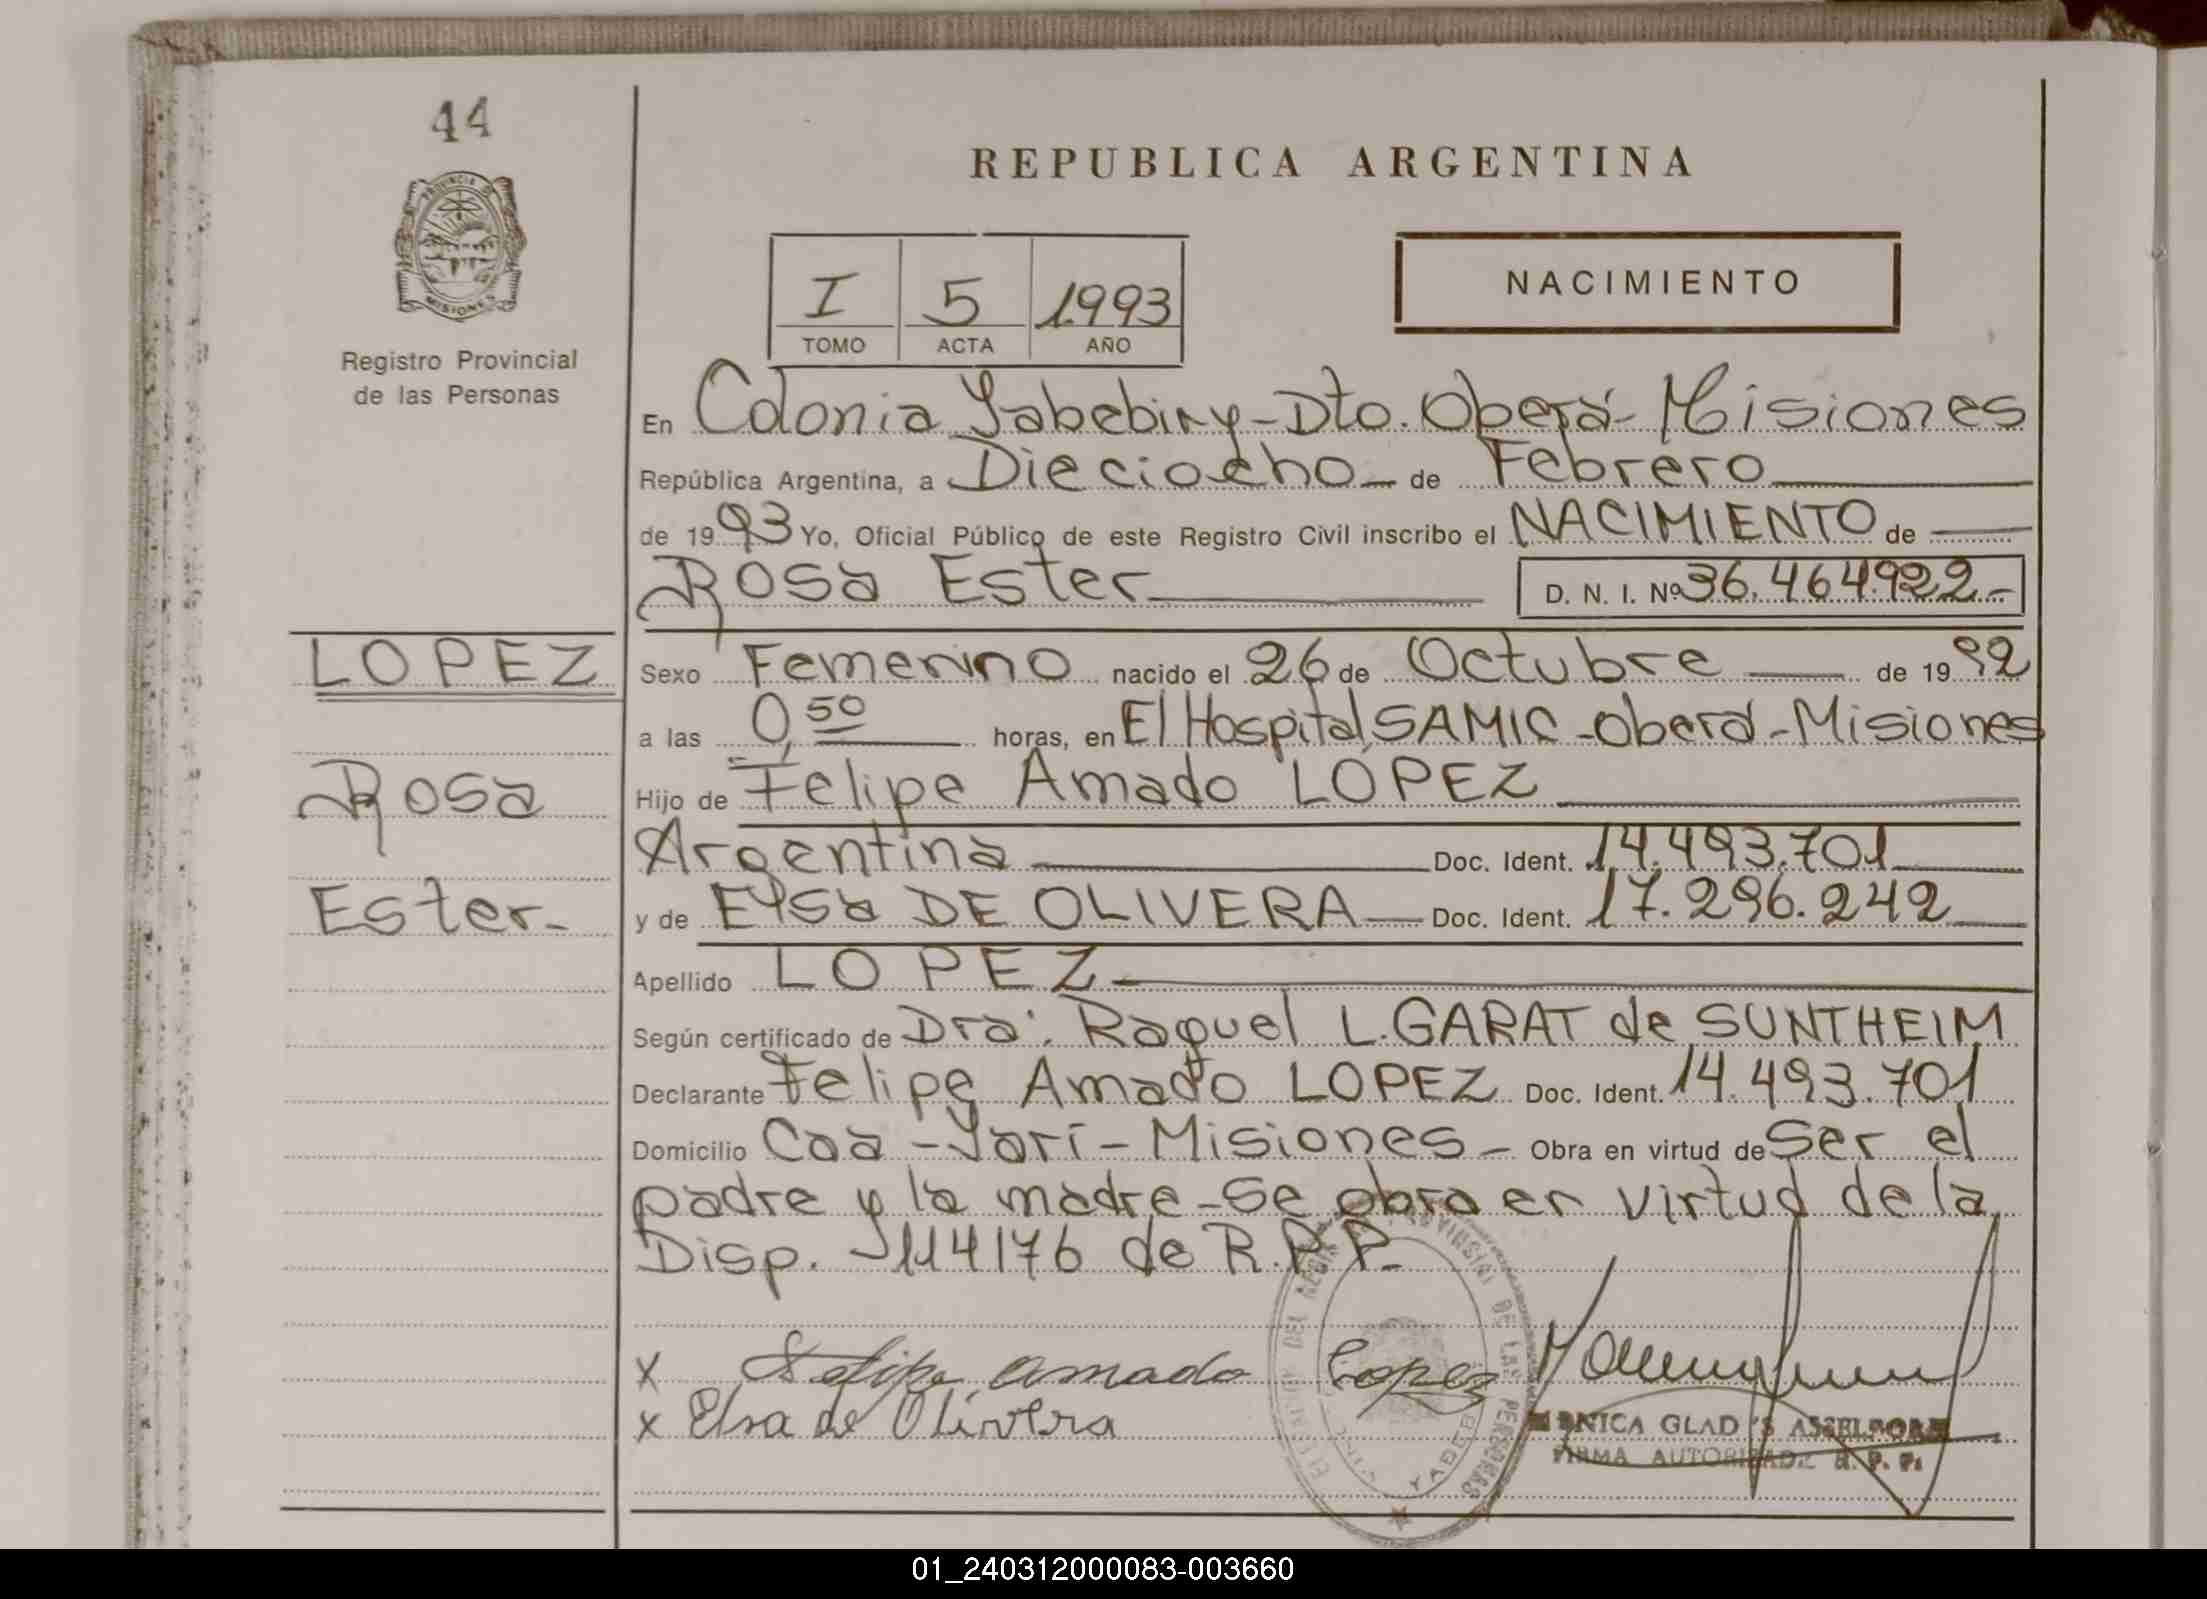 44
PROVINCIA DE
MISIONES
Registro Provincial
de las Personas
LOPEZ
Rosa
Ester-
REPUBLICA ARGENTINA
NACIMIENTO
I 5 1993
TOMO ACTA AÑO
En Colonia Yabebiry-Dto. Oberá-Misiones
República Argentina, a Dieciocho- de Febrero
de 1993 Yo, Oficial Público de este Registro Civil inscribo el NACIMIENTO de
Rosa Ester D. N. I. Nº 36.464.922.-
Sexo Femenino nacido el 26 de Octubre de 1992
a las 0,50 horas, en El Hospital SAMIC-Oberá-Misiones
Hijo de Felipe Amado LOPEZ
Argentina Doc. Ident. 14.493.701
y de Elsa DE OLIVERA Doc. Ident. 17.296.242
Apellido LOPEZ
Según certificado de Dra. Raquel L. GARAT de SUNTHEIM
Declarante Felipe Amado LOPEZ Doc. Ident. 14.493.701
Domicilio Caa-Yarí-Misiones- Obra en virtud de Ser el
padre y la madre-Se obra en virtud de la
Disp. 114176 de R.P.P.-
X Felipe amado Lopez
X Elsa de Olivera
DEL PROVINCIAL DE LAS PERSONAS
YABEBI
GLAD
FIRMA R. P. P.
01_240312000083-003660